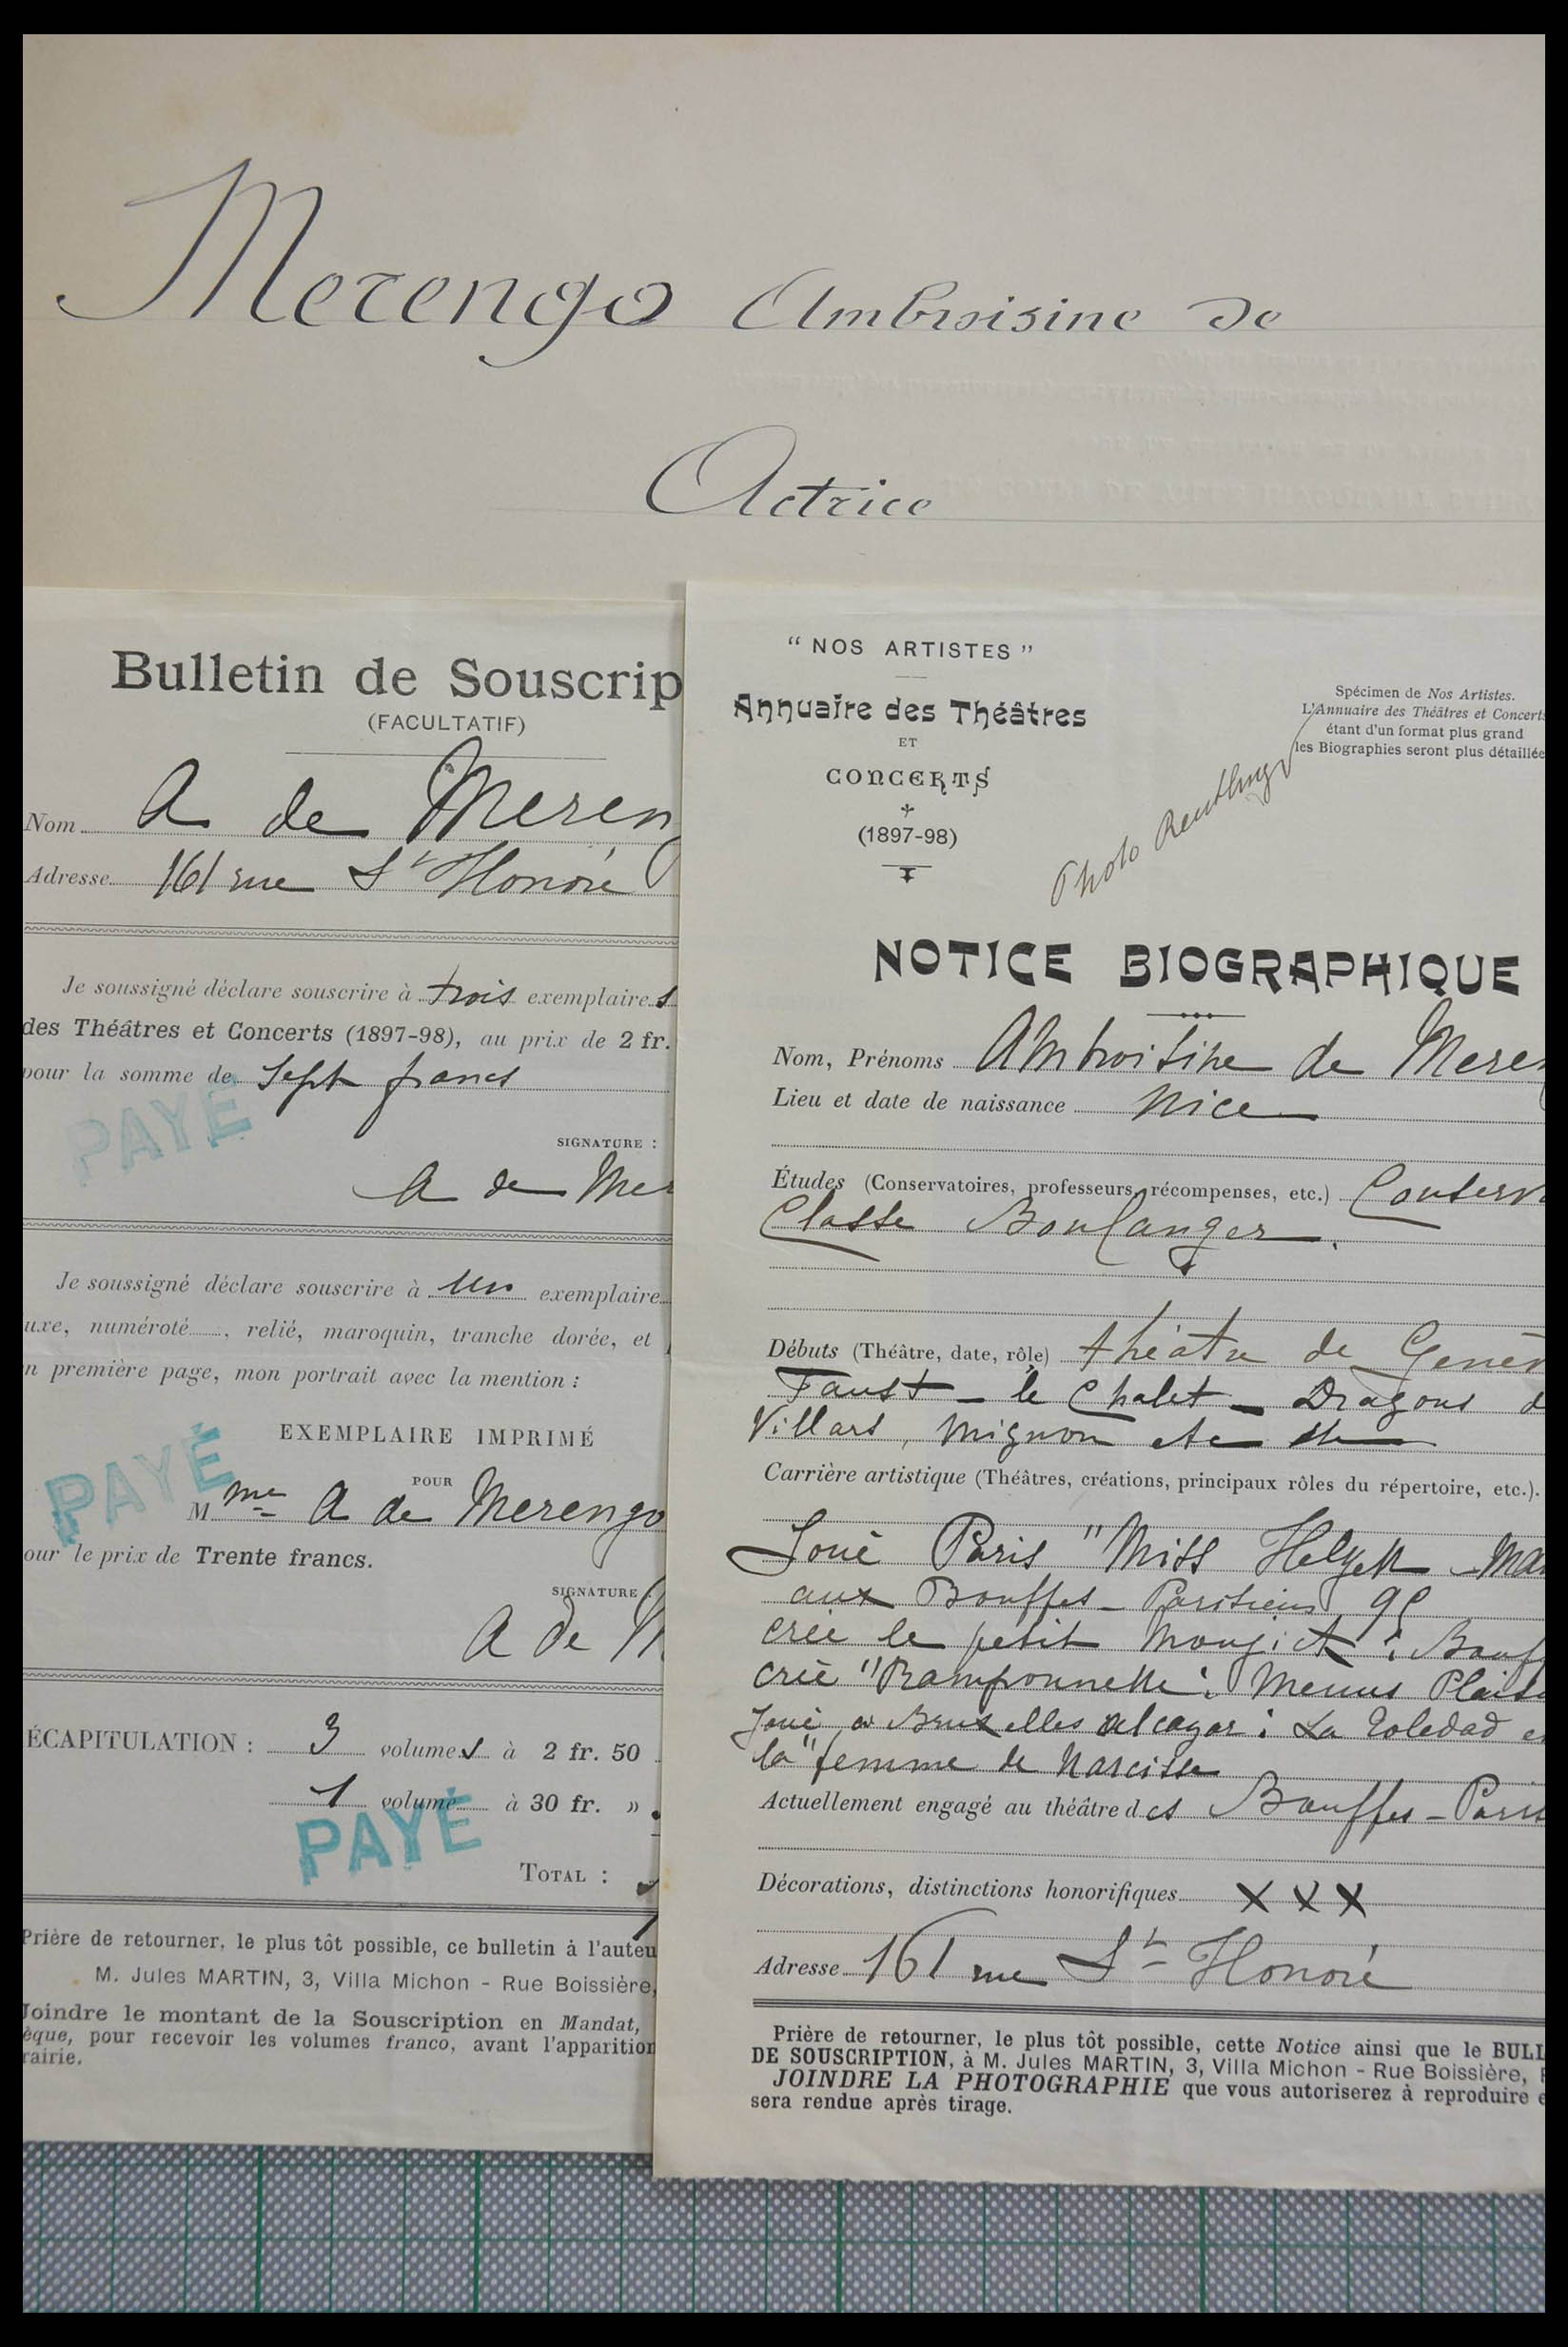 Merengo Ambroisine de
Actrice
Bulletin de Souscrip
(FACULTATIF)
Nom A de Meren
Adresse 161 rue St Honoré
Je soussigné déclare souscrire à trois exemplaires
des Théâtres et Concerts (1897-98), au prix de 2 fr.
pour la somme de Sept francs
PAYÉ
SIGNATURE :
A de Mer
Je soussigné déclare souscrire à un exemplaire
uxe, numéroté, relié, maroquin, tranche dorée, et
n première page, mon portrait avec la mention :
EXEMPLAIRE IMPRIMÉ
PAYÉ
POUR
Mme A de Merengo
our le prix de Trente francs.
SIGNATURE
A de M
ÉCAPITULATION : 3 volumes à 2 fr. 50
1 volume à 30 fr. »
PAYÉ
TOTAL :
Prière de retourner, le plus tôt possible, ce bulletin à l'auteu
M. Jules MARTIN, 3, Villa Michon - Rue Boissière,
Joindre le montant de la Souscription en Mandat,
èque, pour recevoir les volumes franco, avant l'apparition
rairie.
" NOS ARTISTES "
Annuaire des Théâtres
ET
CONCERTS
(1897-98)
Spécimen de Nos Artistes.
L'Annuaire des Théâtres et Concerts
étant d'un format plus grand
les Biographies seront plus détaillée
Photo Reutlinger
NOTICE BIOGRAPHIQUE
Nom, Prénoms Ambroisine de Meren
Lieu et date de naissance Nice
Études (Conservatoires, professeurs, récompenses, etc.) Conserva
Classe Boulanger.
Débuts (Théâtre, date, rôle) théâtre de Genèv
Faust - le Chalet - Dragons d
Villars, Mignon etc etc
Carrière artistique (Théâtres, créations, principaux rôles du répertoire, etc.).
Joué Paris "Miss Helyett - Ma
aux Bouffes-Parisiens, 95
créé le petit Moujick : Bouf
créé "Ramponnette : Menus Plaisi
Joué à Bruxelles Alcazar : La Soledad e
la "femme de Narcisse
Actuellement engagé au théâtre des Bouffes-Paris
Décorations, distinctions honorifiques x x x
Adresse 161 rue St Honoré
Prière de retourner, le plus tôt possible, cette Notice ainsi que le BULL
DE SOUSCRIPTION, à M. Jules MARTIN, 3, Villa Michon - Rue Boissière, P
JOINDRE LA PHOTOGRAPHIE que vous autoriserez à reproduire e
sera rendue après tirage.